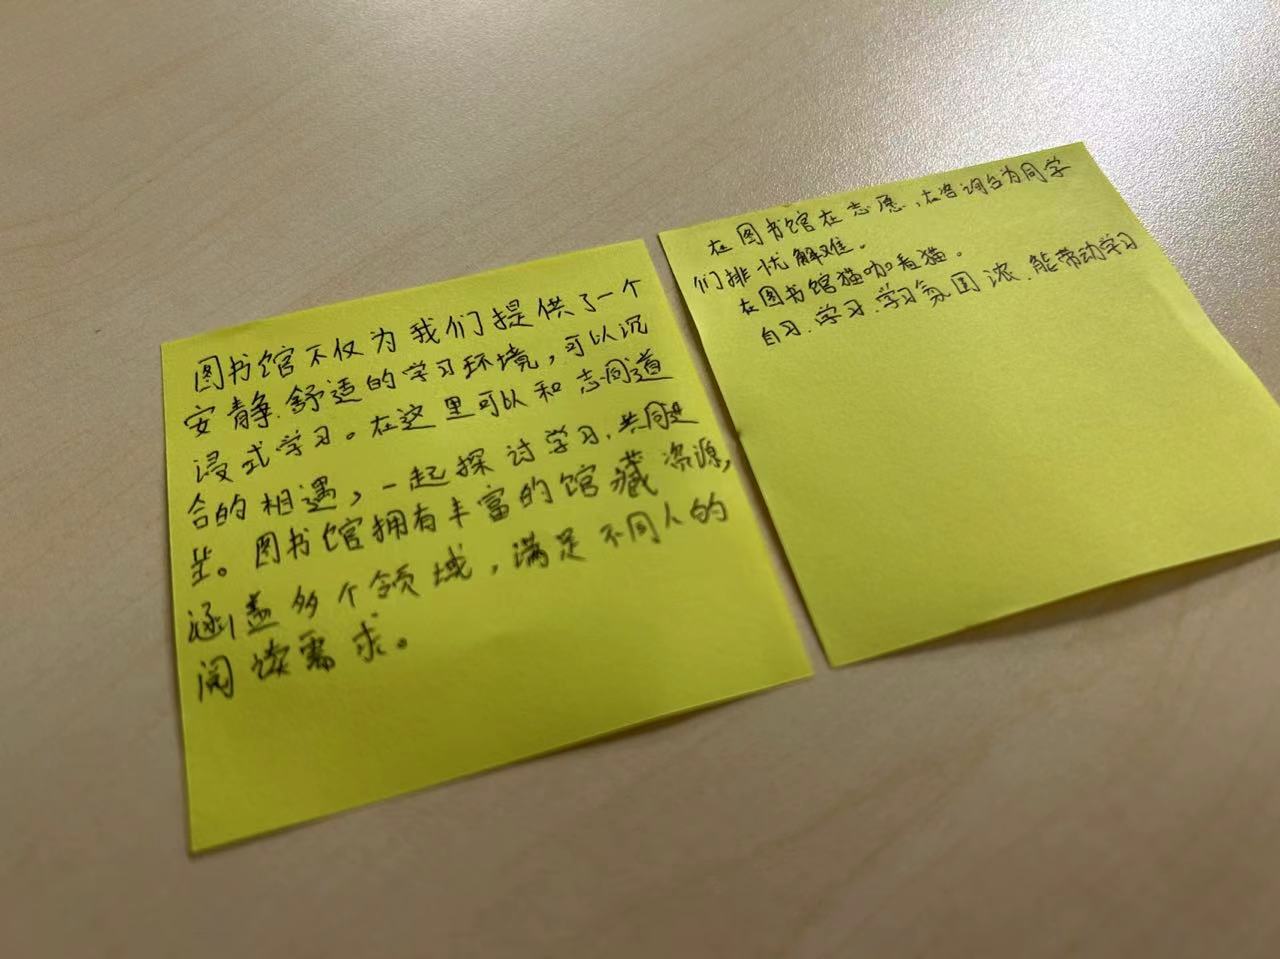 图书馆不仅为我们提供了一个
安静、舒适的学习环境，可以沉
浸式学习。在这里可以和志同道
合的相遇，一起探讨学习，共同进
步。图书馆拥有丰富的馆藏资源，
涵盖多个领域，满足不同人的
阅读需求。
在图书馆在志愿，在咨询台为同学
们排忧解难。
在图书馆猫咖看猫。
自习、学习、学习氛围浓、能带动学习